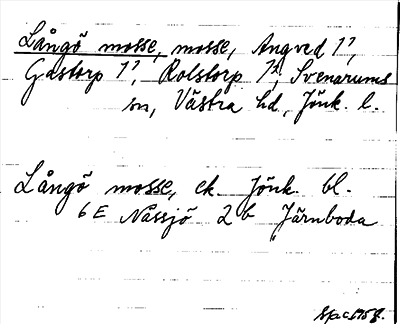 Långö mosse, mosse, Angved 1?,
Gastorp 1?, Rolstorp 1?, Svenarums
sn, Västra hd, Jönk. l.
Långö mosse, ek. Jönk. bl.
6E Nässjö 2b Järnboda